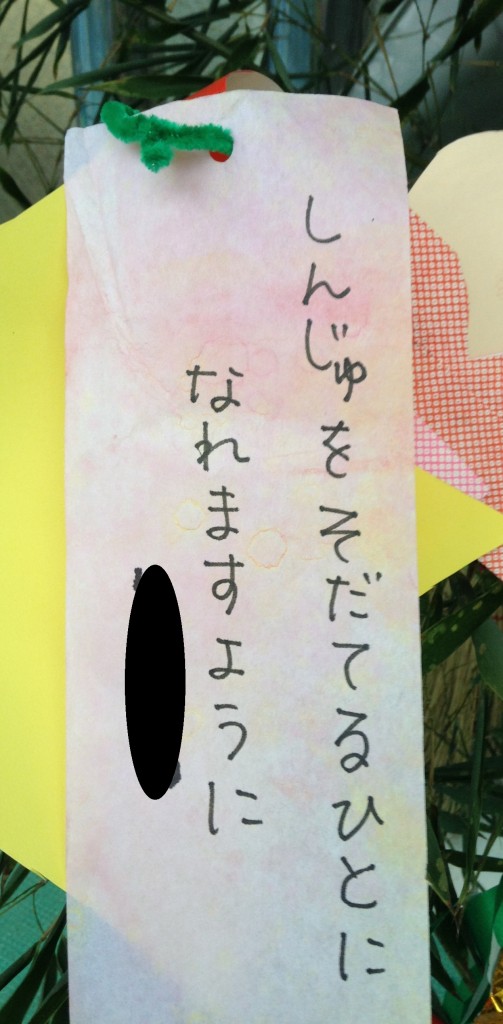 しんじゅをそだてるひとに
なれますように